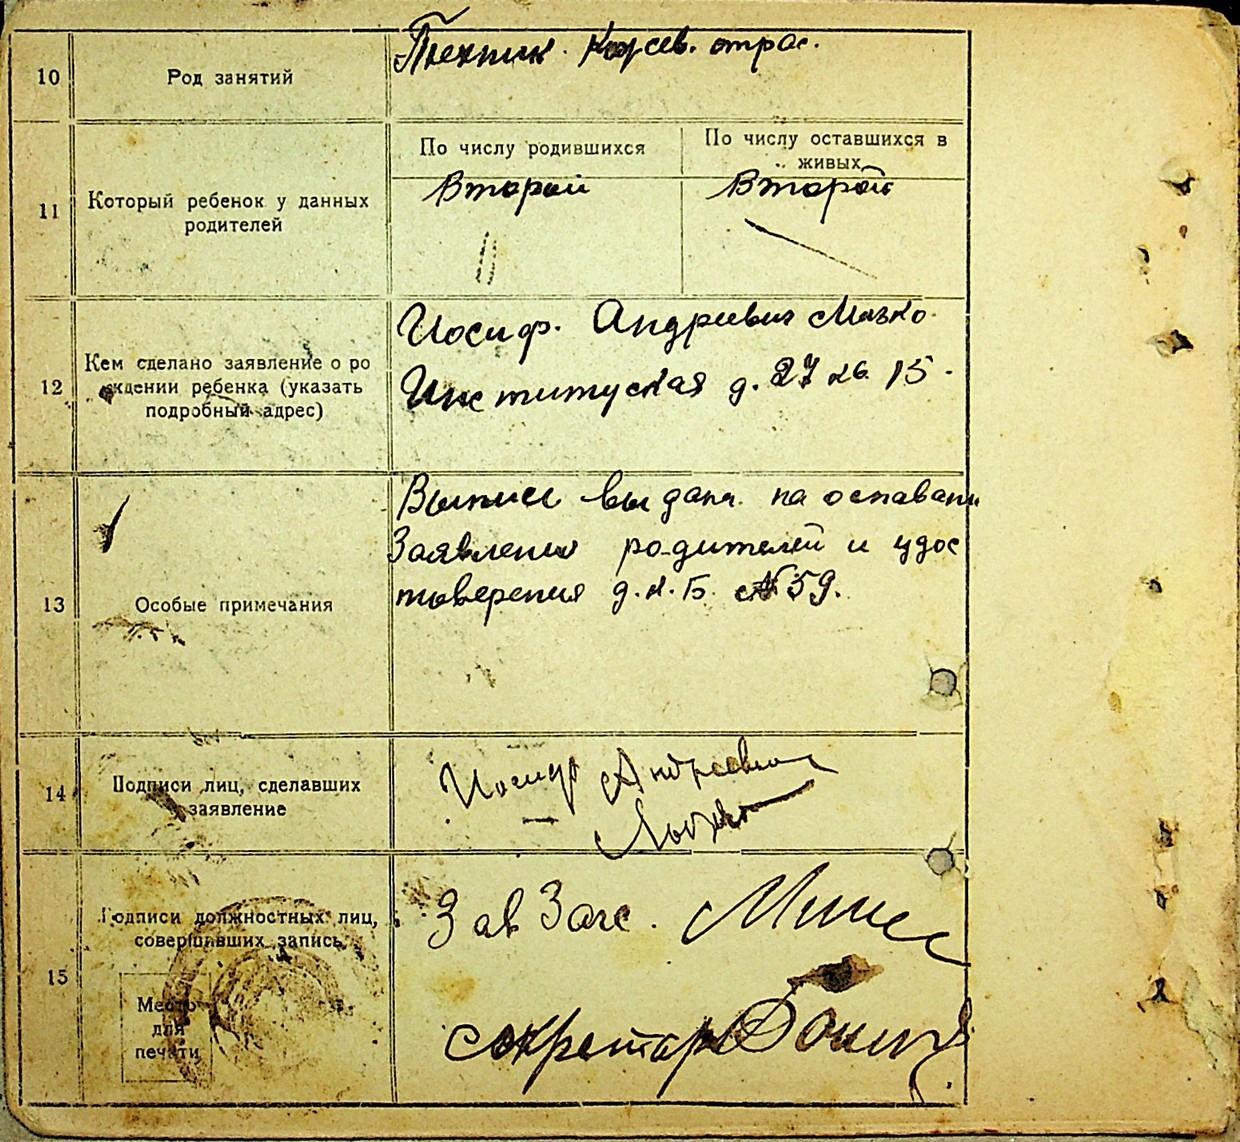 10
Род занятий
Техник. Кожев. отрас.
11
Который ребенок у данных
родителей
По числу родившихся
Второй
По числу оставшихся в
живых
Второй
12
Кем сделано заявление о ро
ждении ребенка (указать
подробный адрес)
Иосиф. Андреевич
Институская д. 27 кв. 15.
13
Особые примечания
Выписи выдана. на основани
Заявления родителей и удос
товерения д.к.Б. № 59.
14
Подписи лиц, сделавших
заявление
Иосиф Андреевич
15
Подписи должностных лиц,
совершивших запись
Место
для
печати
Зав Загс.
секретарь